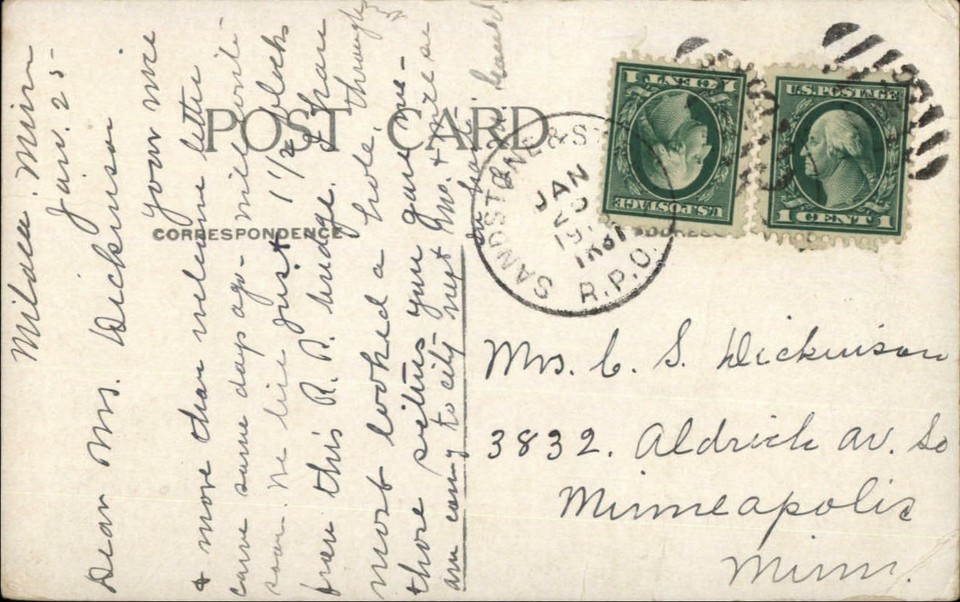 POST CARD
CORRESPONDENCE
Milaca. Minn
Jan. 25
Dear Mrs. Dickinson
Your nice
& more than welcome letter
came some days ago - will write
soon. We live just 1 1/2 blocks
from this R. R. bridge. I have
most looked a hole through
those you gave me -
am coming to city next mo. &
Mrs. C. S. Dickinson
3832. Aldrich av. So
Minneapolis
Minn.
SANDSTONE & ST
JAN
R.P.O.
U.S. POSTAGE
1 CENT 1
U.S. POSTAGE
1 CENT 1